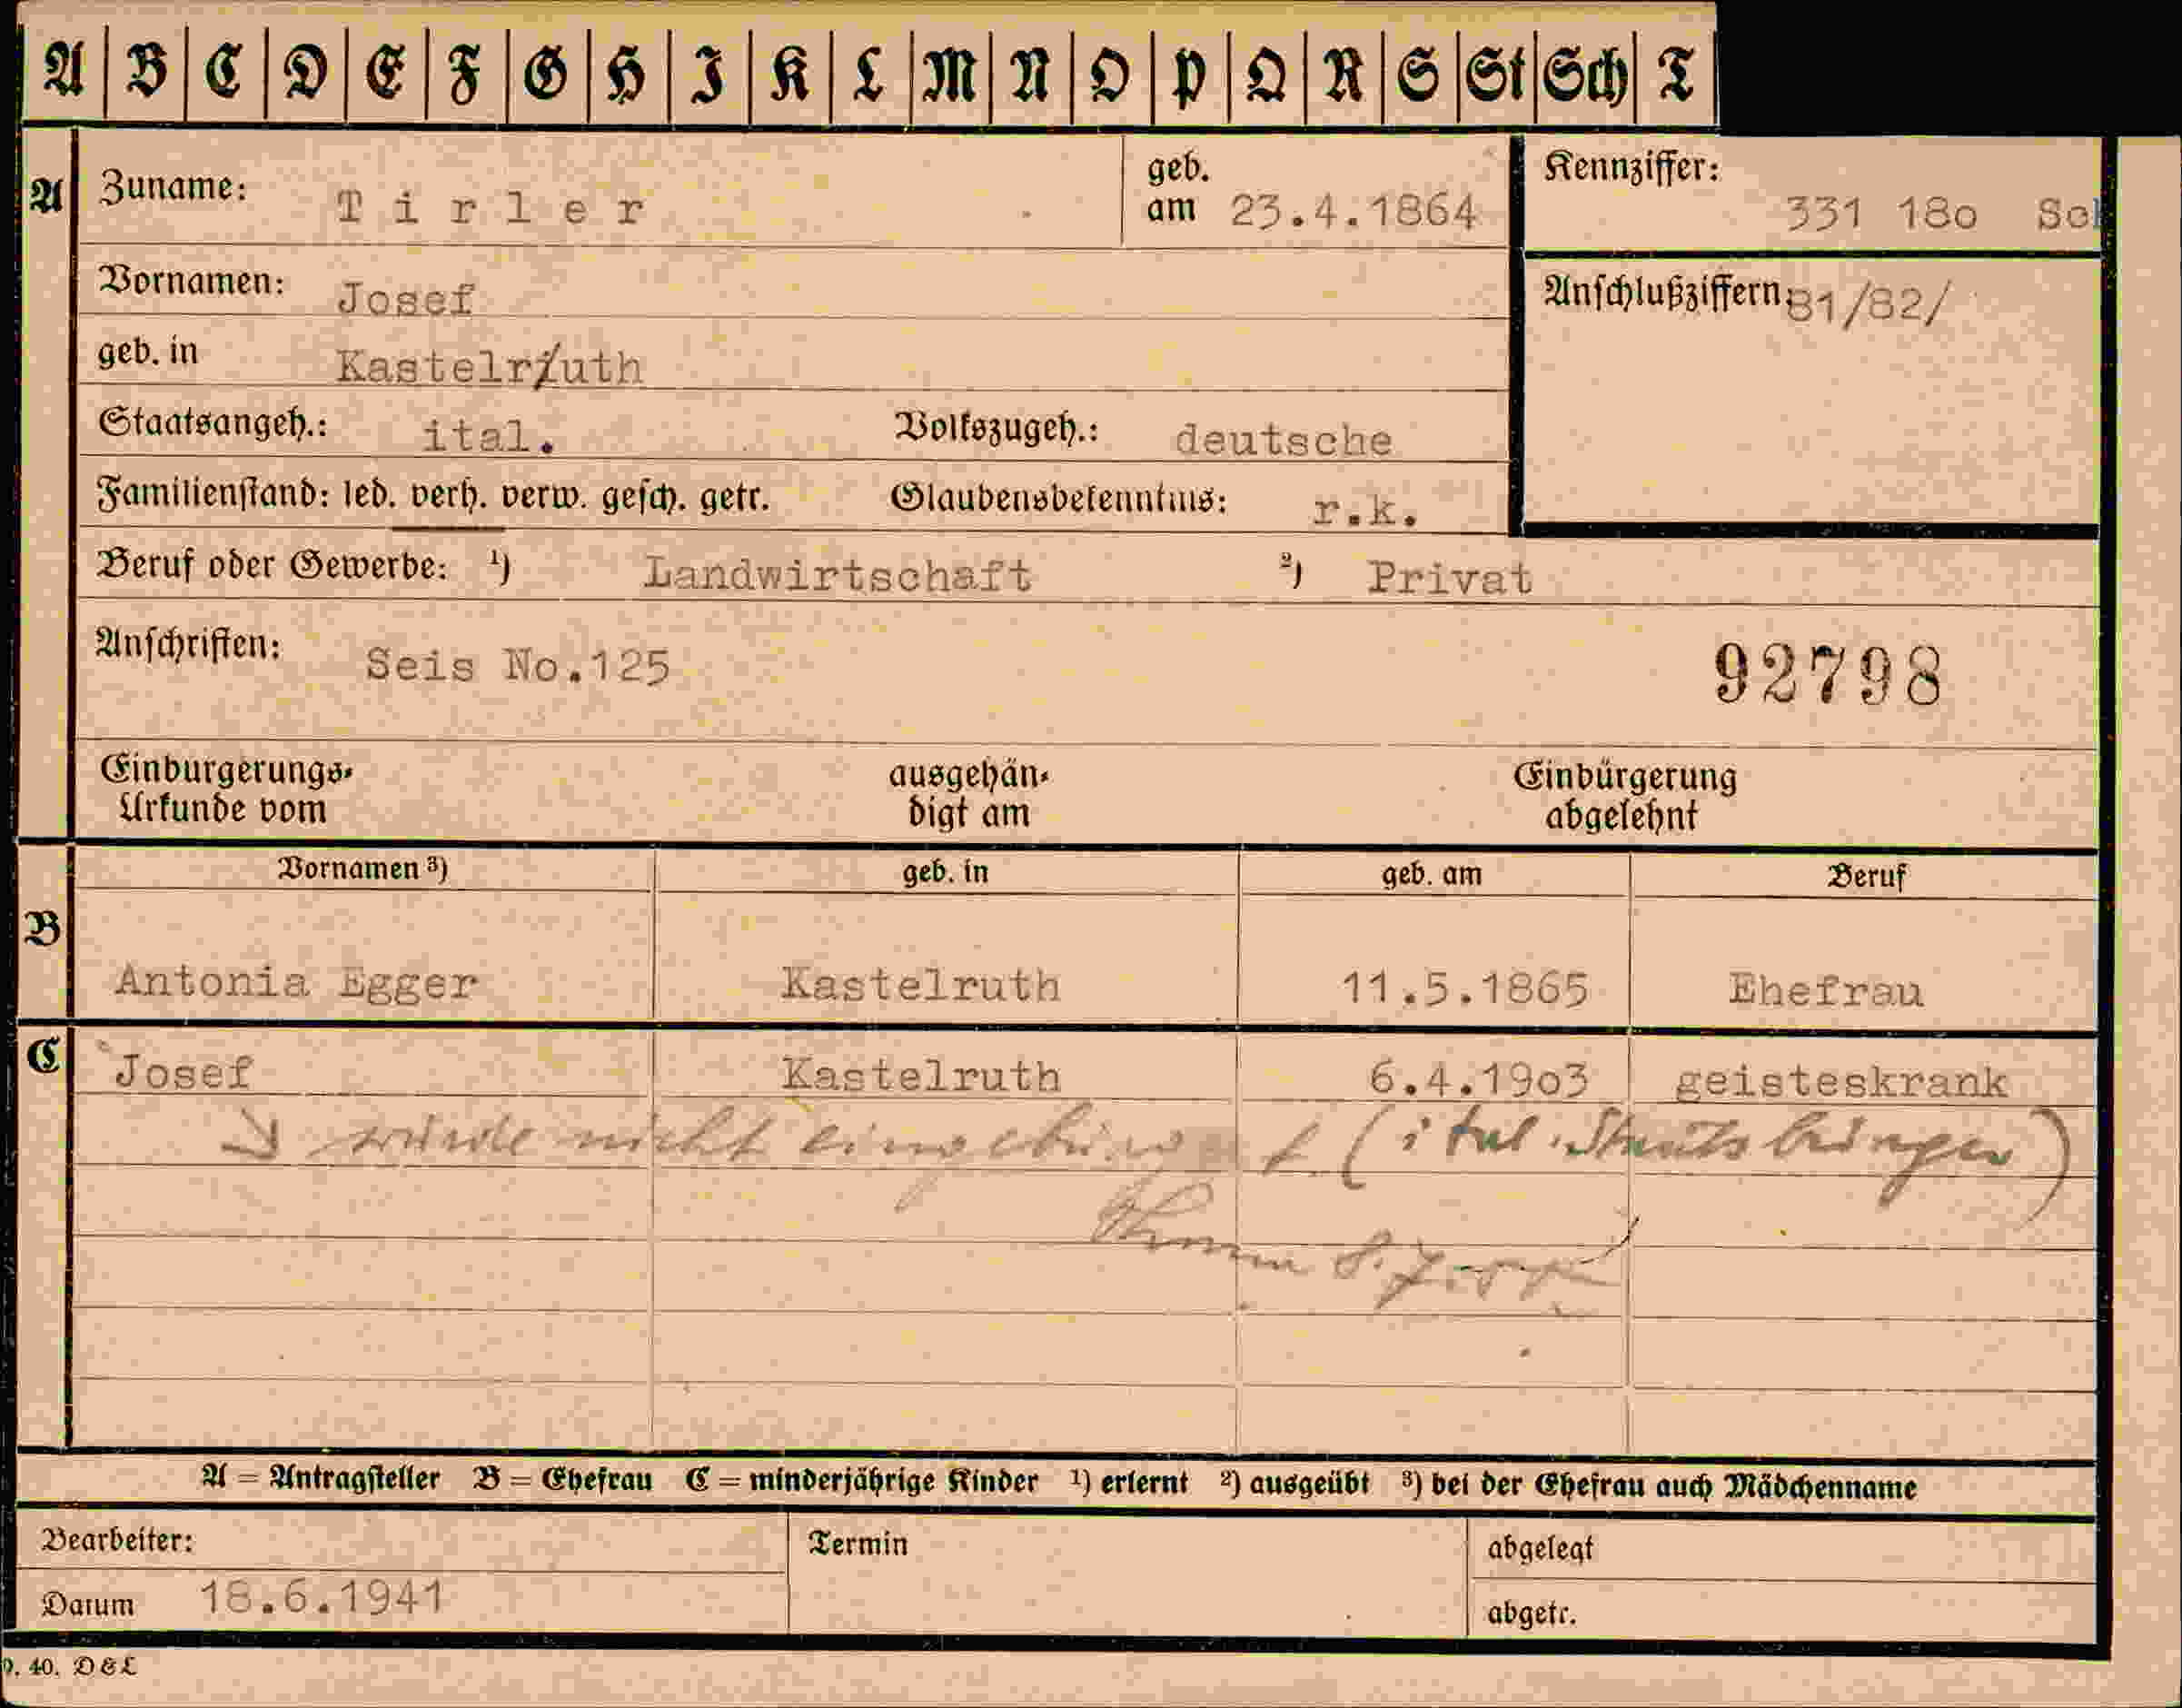 A B C D E F G H I K L M N O P Q R S St Sch T
A Zuname: Tirler geb. am 23.4.1864 Kennziffer: 331 18o
Vornamen: Josef Anschlußziffern: 81/82/
geb. in Kastelr/uth
Staatsangeh.: ital. Volkszugeh.: deutsche
Familienstand: led. verh. verw. gesch. getr. Glaubensbekenntnis: r.k.
Beruf oder Gewerbe: ¹) Landwirtschaft ²) Privat
Anschriften: Seis No.125 92798
Einbürgerungs-Urkunde vom ausgehändigt am Einbürgerung abgelehnt
Vornamen ³) geb. in geb. am Beruf
B Antonia Egger Kastelruth 11.5.1865 Ehefrau
C Josef Kastelruth 6.4.19o3 geisteskrank
wurde nicht eingebürgert (ital. Staatsbürger)
A = Antragsteller B = Ehefrau C = minderjährige Kinder ¹) erlernt ²) ausgeübt ³) bei der Ehefrau auch Mädchenname
Bearbeiter: Termin abgelegt
Datum 18.6.1941 abgetr.
40. D&L